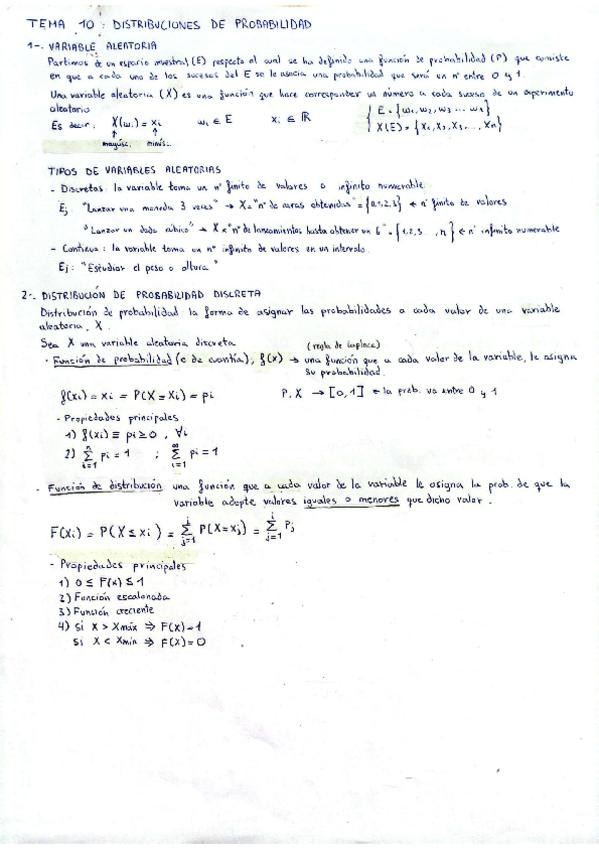 TEMA 10: DISTRIBUCIONES DE PROBABILIDAD
1-. VARIABLE ALEATORIA
Partimos de un espacio muestral (E) respecto al cual se ha definido una función de probabilidad (P) que consiste
en que a cada uno de los sucesos del E se le asocia una probabilidad que será un nº entre 0 y 1.
Una variable aleatoria (X) es una función que hace corresponder un número a cada suceso de un experimento
aleatorio
Es decir: X(wi) = xi wi ∈ E xi ∈ ℝ { E = {w1, w2, w3 ... wn}
X(E) = {X1, X2, X3, ..., Xn}
mayúsc. minús.
TIPOS DE VARIABLES ALEATORIAS
- Discretas: la variable toma un nº finito de valores o infinito numerable.
Ej: "Lanzar una moneda 3 veces" → X = "nº de caras obtenidas" = {0,1,2,3} ← nº finito de valores
"Lanzar un dado cúbico" → X = "nº de lanzamientos hasta obtener un 6" = {1,2,3 ..., n} ← nº infinito numerable
- Continua: la variable toma un nº infinito de valores en un intervalo.
Ej: "Estudiar el peso o altura"
2-. DISTRIBUCIÓN DE PROBABILIDAD DISCRETA
Distribución de probabilidad: la forma de asignar las probabilidades a cada valor de una variable
aleatoria, X.
Sea X una variable aleatoria discreta (regla de Laplace)
· Función de probabilidad (o de cuantía), f(x) → una función que a cada valor de la variable, le asigna
su probabilidad.
f(xi) = xi = P(X = Xi) = pi P. X → [0,1] ← la prob. va entre 0 y 1
- Propiedades principales
1) f(xi) ≡ pi ≥ 0, ∀i
2) ∑ i=1 n pi = 1 ; ∑ i=1 ∞ pi = 1
· Función de distribución: una función que a cada valor de la variable le asigna la prob. de que la
variable adopte valores iguales o menores que dicho valor.
F(xi) = P(X ≤ xi) = ∑ j=1 i P(X = xj) = ∑ j=1 i Pj
- Propiedades principales
1) 0 ≤ F(x) ≤ 1
2) Función escalonada
3) Función creciente
4) Si X > Xmáx ⇒ F(X) = 1
Si X < Xmin ⇒ F(X) = 0